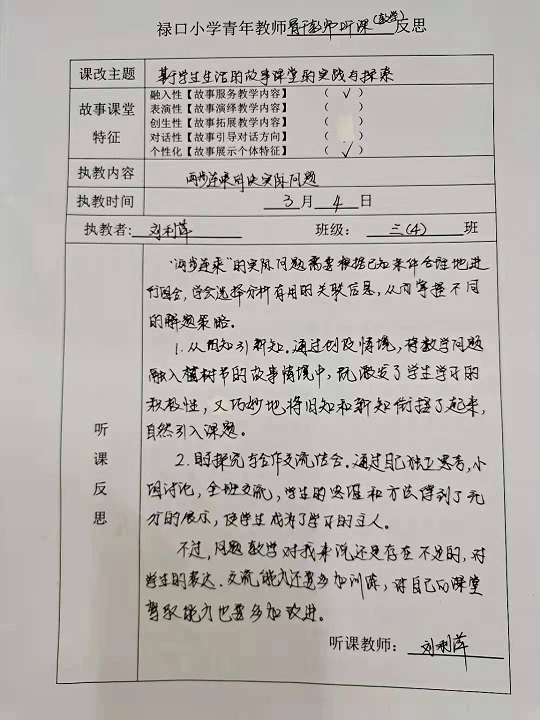 禄口小学青年教师 听课(教学)反思
课改主题 基于学生生活的故事课堂的实践与探索
故事课堂特征
融入性【故事服务教学内容】 （ √ ）
表演性【故事演绎教学内容】 （ ）
创生性【故事拓展教学内容】 （ ）
对话性【故事引导对话方向】 （ ）
个性化【故事展示个体特征】 （ √ ）
执教内容 两步连乘解决实际问题
执教时间 3 月 4 日
执教者: 刘利萍 班级: 三(4) 班
听课反思
"两步连乘"的实际问题需要根据已知条件合理地进
行组合,学会选择分析有用的关联信息,从而掌握不同
的解题策略。
1.从旧知引新知。通过创设情境,将数学问题
融入植树节的故事情境中,既激发了学生学习的
积极性,又巧妙地将旧知和新知衔接了起来,
自然引入课题。
2. 探究与合作交流结合。通过自己独立思考,小
组讨论,全班交流,学生的思维和方法得到了充
分的展示,使学生成为了学习的主人。
不过,问题教学对我来说还是存在不足的,对
学生的表达、交流能力还要多加训练,对自己的课堂
驾驭能力也要多加改进。
听课教师: 刘利萍